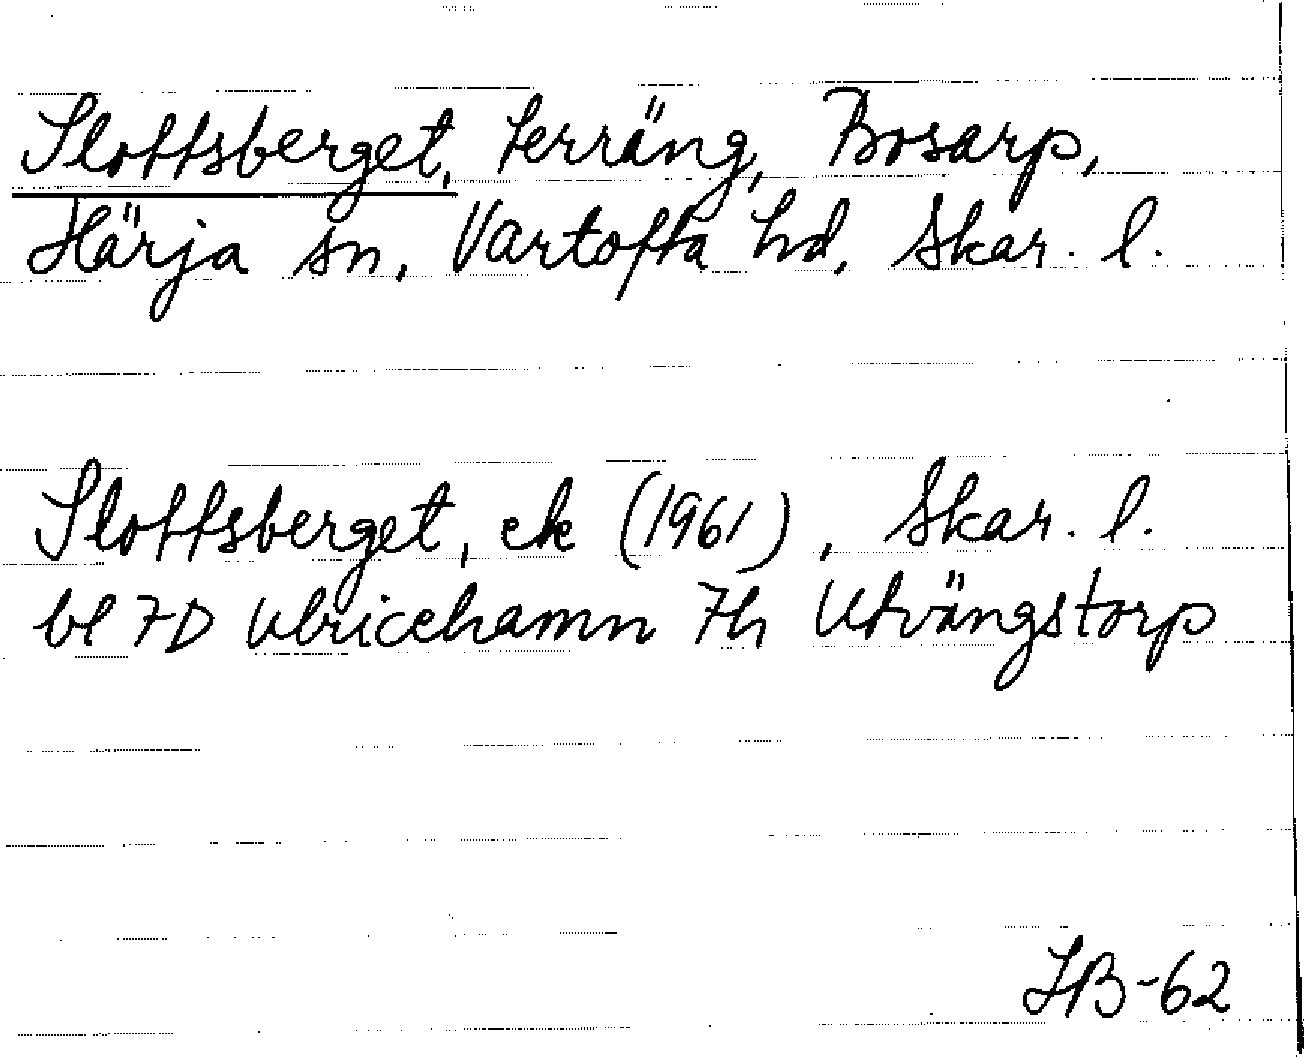 Slottsberget, terräng, Bosarp,
Härja sn, Vartofta hd, Skar. l.
Slottsberget, ek (1961), Skar. l.
bl 7D Ulricehamn 7h Utvängstorp
HB-62